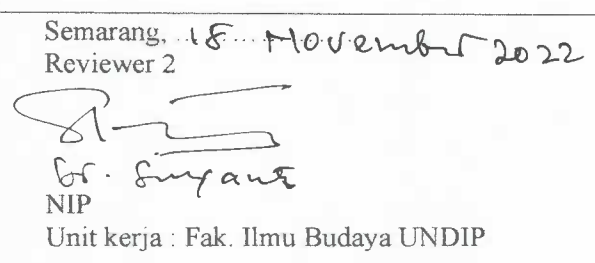 Semarang, 18 November 2022
Reviewer 2
Dr. Suryanti
NIP
Unit kerja : Fak. Ilmu Budaya UNDIP